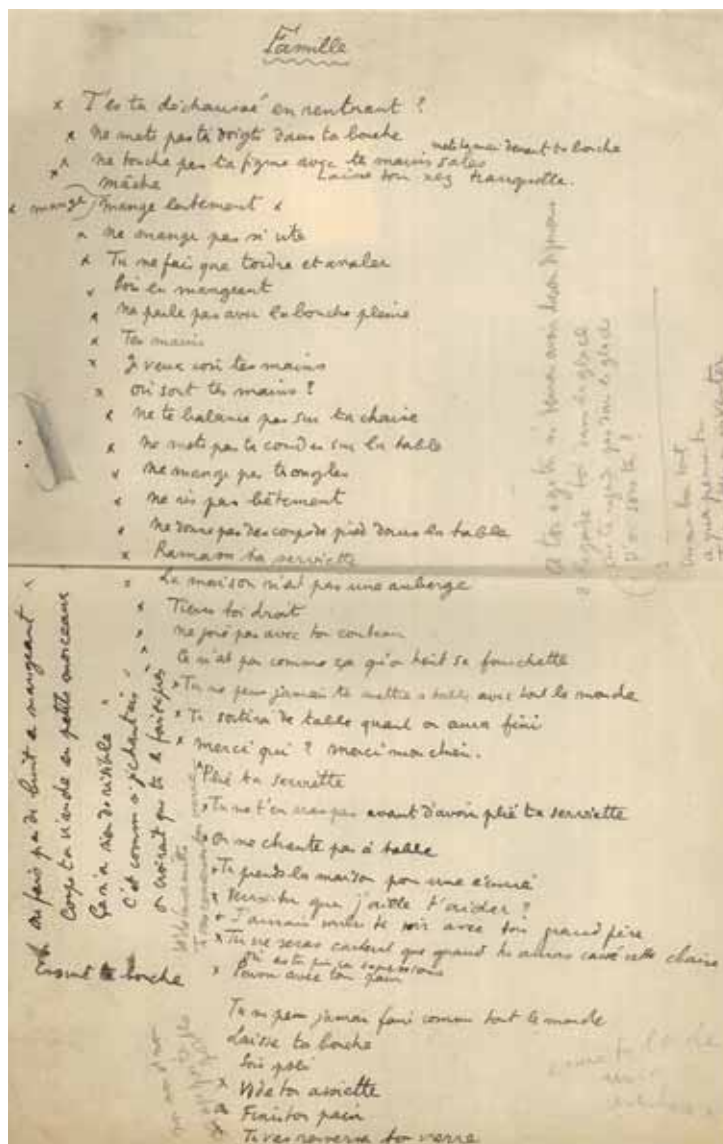 Famille
T'es tu déchaussé en rentrant ?
Ne mets pas tes doigts dans ta bouche
mets la main devant ta bouche
Ne touche pas ta figure avec tes mains sales
Laisse ton nez tranquille.
Mâche
mange Mange lentement
Ne mange pas si vite
Tu ne fais que tordre et avaler
Bois en mangeant
Ne parle pas avec la bouche pleine
Tes mains
Je veux voir tes mains
Où sont tes mains ?
Ne te balance pas sur ta chaise
Ne mets pas tes coudes sur la table
Ne mange pas tes ongles
Ne ris pas bêtement
Ne donne pas des coups de pied dans la table
Ramasse ta serviette
La maison n'est pas une auberge
Tiens toi droit
Ne joue pas avec ton couteau
Ce n'est pas comme ça qu'on tient sa fourchette
Tu ne peux jamais te mettre à table avec tout le monde
Tu sortiras de table quand on aura fini
Merci qui ? merci mon chien.
Plie ta serviette
Tu ne t'en iras pas avant d'avoir plié ta serviette
On ne chante pas à table
Tu prends la maison pour une écurie
Veux-tu que j'aille t'aider ?
J'aurais voulu te voir avec ton grand père
Tu ne seras content que quand tu auras cassé cette chaise
Pousse avec ton pain
Tu ne peux jamais faire comme tout le monde
Laisse ta bouche
Sois poli
Vide ton assiette
Finis ton pain
Tu vas renverser ton verre
Ne fais pas de bruit en mangeant
Coupe ta viande en petits morceaux
Ça n'a rien de risible
C'est comme si je chantais
On croirait que tu le fais exprès
Essuie ta bouche
A ton âge tu ne devrais avoir besoin de personne
Regarde toi dans la glace
D'où sors-tu ?